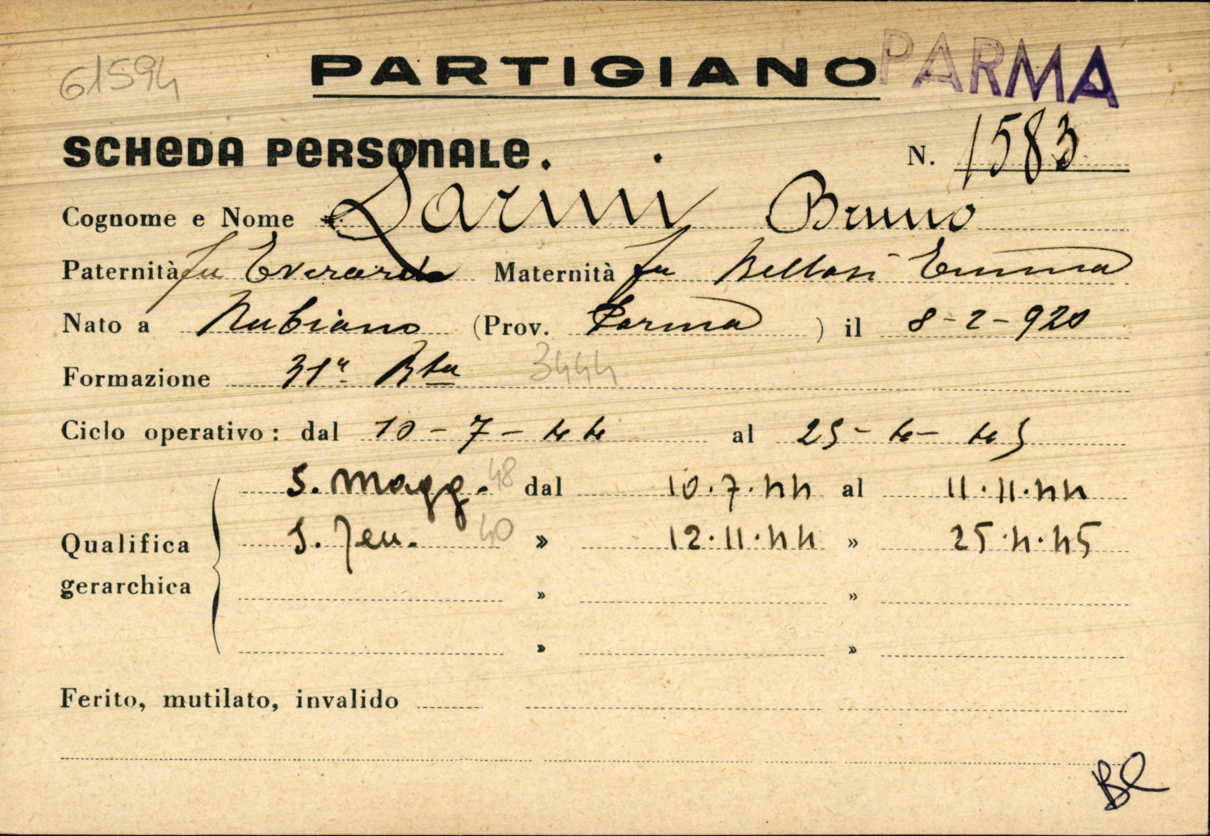 61594 PARTIGIANO PARMA
SCHEDA PERSONALE. N. 1583
Cognome e Nome Larini Bruno
Paternità fu Everardo Maternità fu Bellasi Emma
Nato a Rubiano (Prov. Parma) il 8-2-920
Formazione 31ª Bta 3444
Ciclo operativo: dal 10-7-44 al 25-4-45
S. Magg. 48 dal 10.7.44 al 11.11.44
Qualifica gerarchica S. Ten. 40 » 12.11.44 » 25.4.45
» »
» »
Ferito, mutilato, invalido